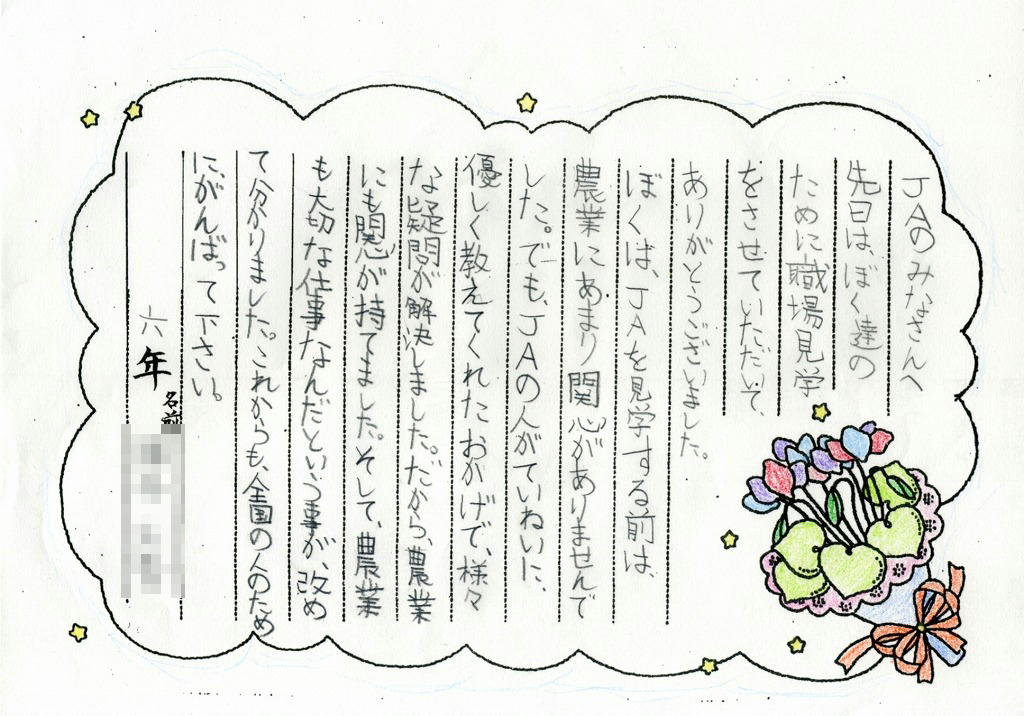 JAのみなさんへ
先日は、ぼく達の
ために職場見学
をさせていただいて、
ありがとうございました。
ぼくは、JAを見学する前は、
農業にあまり関心がありませんで
した。でも、JAの人がていねいに、
優しく教えてくれたおかげで、様々
な疑問が解決しました。だから、農業
にも関心が持てました。そして、農業
も大切な仕事なんだという事が、改め
て分かりました。これからも、全国の人のため
にがんばって下さい。
六年 名前